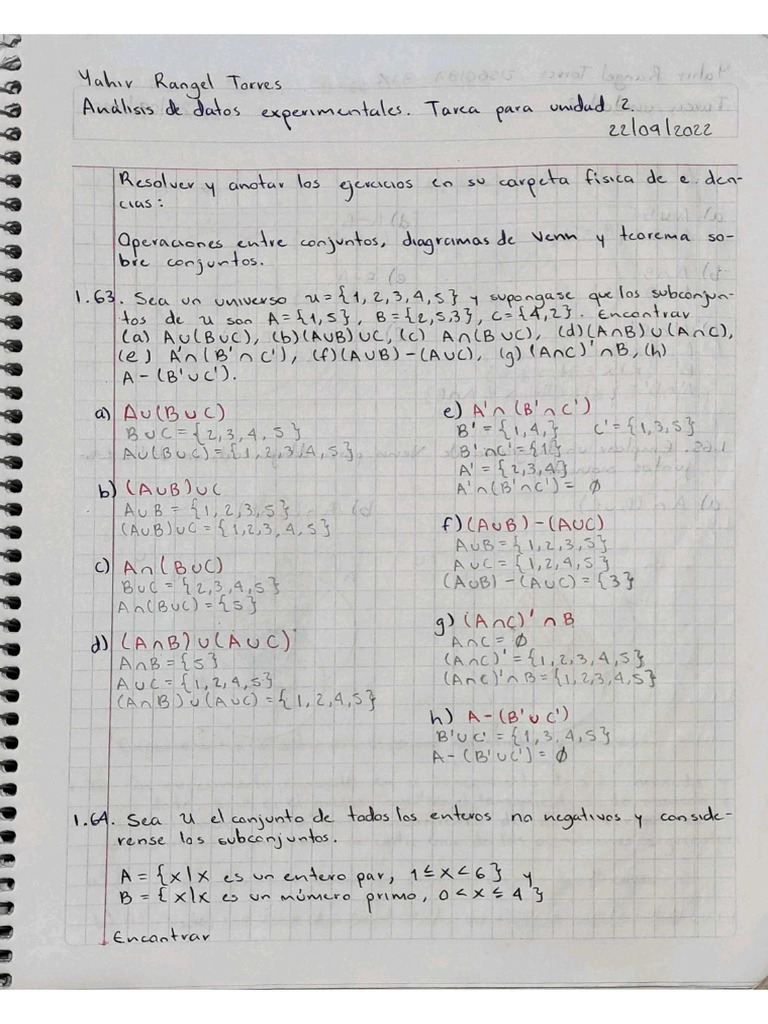 Yahir Rangel Torres
Análisis de datos experimentales. Tarea para unidad 2.
22/09/2022
Resolver y anotar los ejercicios en su carpeta fisica de e.den-
cias:
Operaciones entre conjuntos, diagramas de Venn y teorema so-
bre conjuntos.
1.63. Sea un universo u={1,2,3,4,5} y supongase que los subconjun-
tos de u son A={1,5}, B={2,5,3}, C={4,2}. Encontrar
(a) A∪(B∪C), (b)(A∪B)∪C, (c) A∩(B∪C), (d)(A∩B)∪(A∩C),
(e) A'∩(B'∩C'), (f)(A∪B)-(A∪C), (g)(A∩C)'∩B, (h)
A-(B'∪C').
a) A∪(B∪C)
B∪C={2,3,4,5}
A∪(B∪C)={1,2,3,4,5}
b) (A∪B)∪C
A∪B={1,2,3,5}
(A∪B)∪C={1,2,3,4,5}
c) A∩(B∪C)
B∪C={2,3,4,5}
A∩(B∪C)={5}
d) (A∩B)∪(A∪C)
A∩B={5}
A∪C={1,2,4,5}
(A∩B)∪(A∪C)={1,2,4,5}
e) A'∩(B'∩C')
B'={1,4,} C'={1,3,5}
B'∩C'={1}
A'={2,3,4}
A'∩(B'∩C')= ∅
f) (A∪B)-(A∪C)
A∪B={1,2,3,5}
A∪C={1,2,4,5}
(A∪B)-(A∪C)={3}
g) (A∩C)'∩B
A∩C=∅
(A∩C)'={1,2,3,4,5}
(A∩C)'∩B={1,2,3,4,5}
h) A-(B'∪C')
B'∪C'={1,3,4,5}
A-(B'∪C')=∅
1.64. Sea U el conjunto de todos los enteros no negativos y conside-
rense los subconjuntos.
A={x|x es un entero par, 1≤x<6} y
B={x|x es un número primo, 0<x≤4}
Encontrar